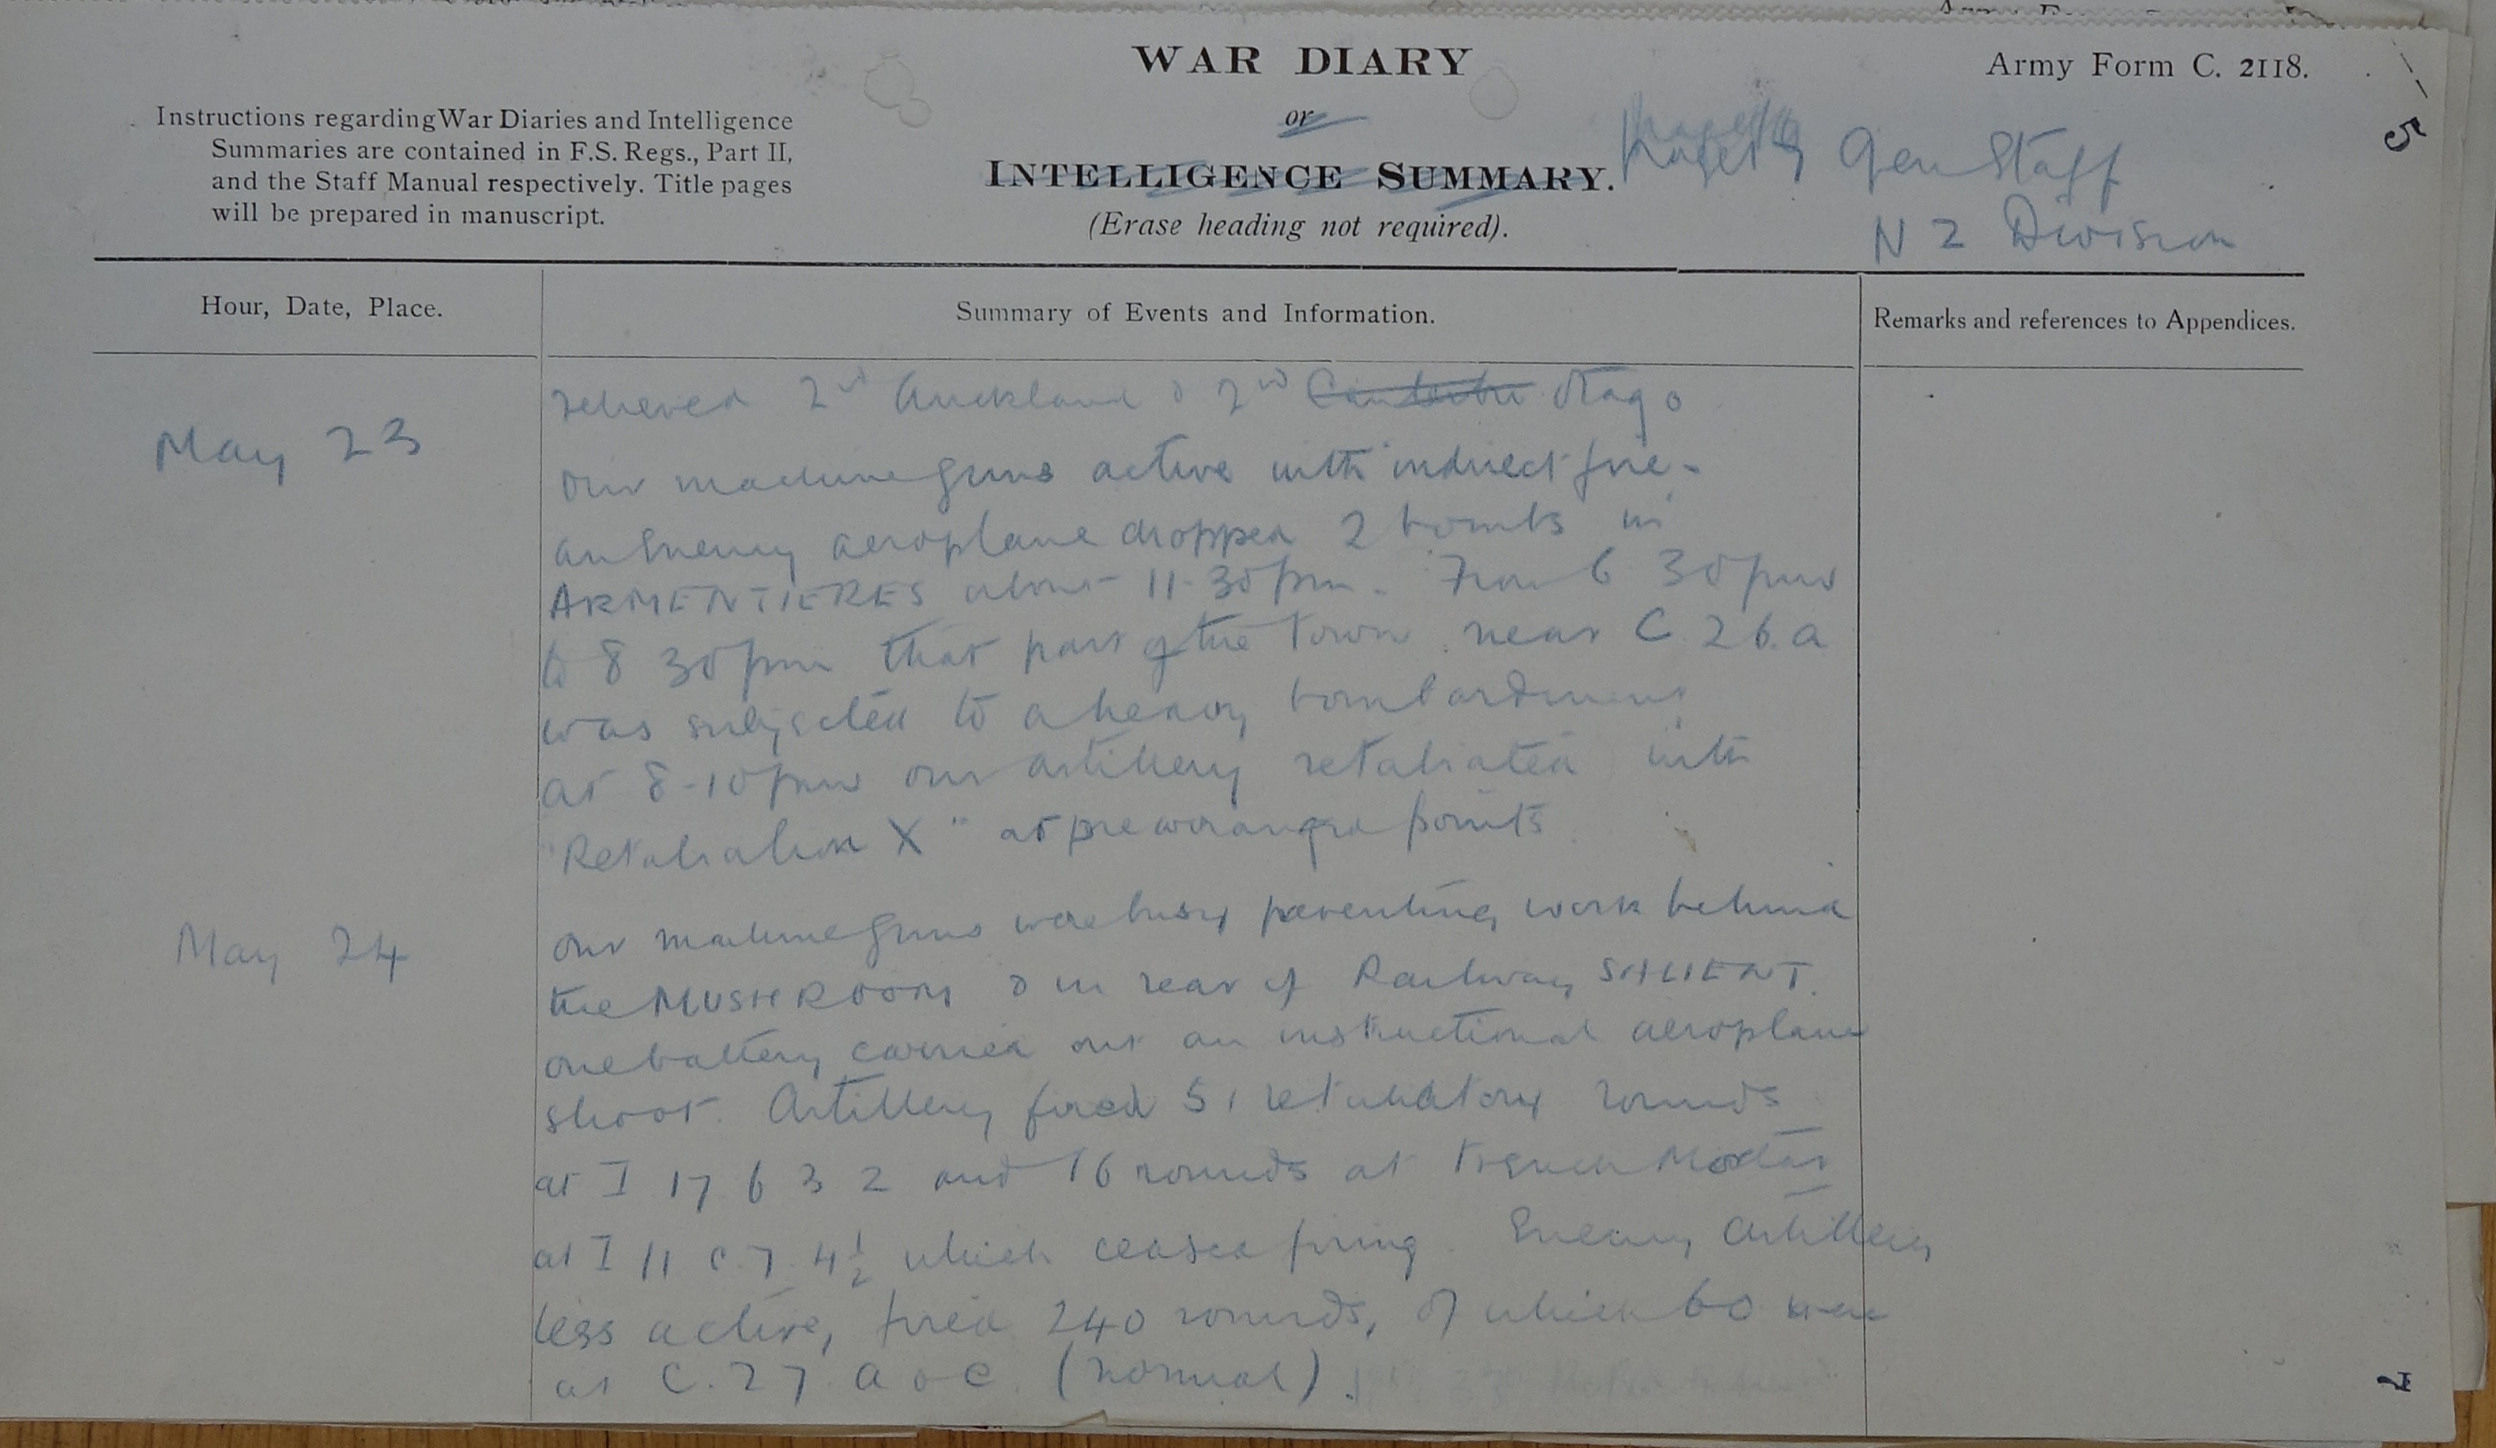 WAR DIARY
Army Form C. 2118.
or
Instructions regarding War Diaries and Intelligence
Summaries are contained in F.S. Regs., Part II,
and the Staff Manual respectively. Title pages
will be prepared in manuscript.
INTELLIGENCE SUMMARY.
(Erase heading not required).
Gen Staff
N Z Division
5
Hour, Date, Place.
Summary of Events and Information.
Remarks and references to Appendices.
relieved 2nd Auckland & 2nd Otago
May 23
Our machine guns active with indirect fire.
an Enemy aeroplane dropped 2 bombs in
ARMENTIERES about 11.30 pm. From 6 30 pm
to 8 30 pm that part of the Town near C 26.a
was subjected to a heavy bombardment
at 8.10 pm our artillery retaliated with
"Retaliation X" at prearranged points
May 24
Our machine guns were busy preventing work behind
the MUSHROOM & in rear of Railway SALIENT.
one battery carried out an instructional aeroplane
shoot. Artillery fired 51 retaliatory rounds
at I 17 b 3 2 and 16 rounds at Trench Mortar
at I 11 c.7.4½ which ceased firing. Enemy Artillery
less active, fired 240 rounds, of which 60 were
at C.27 a & c (normal).